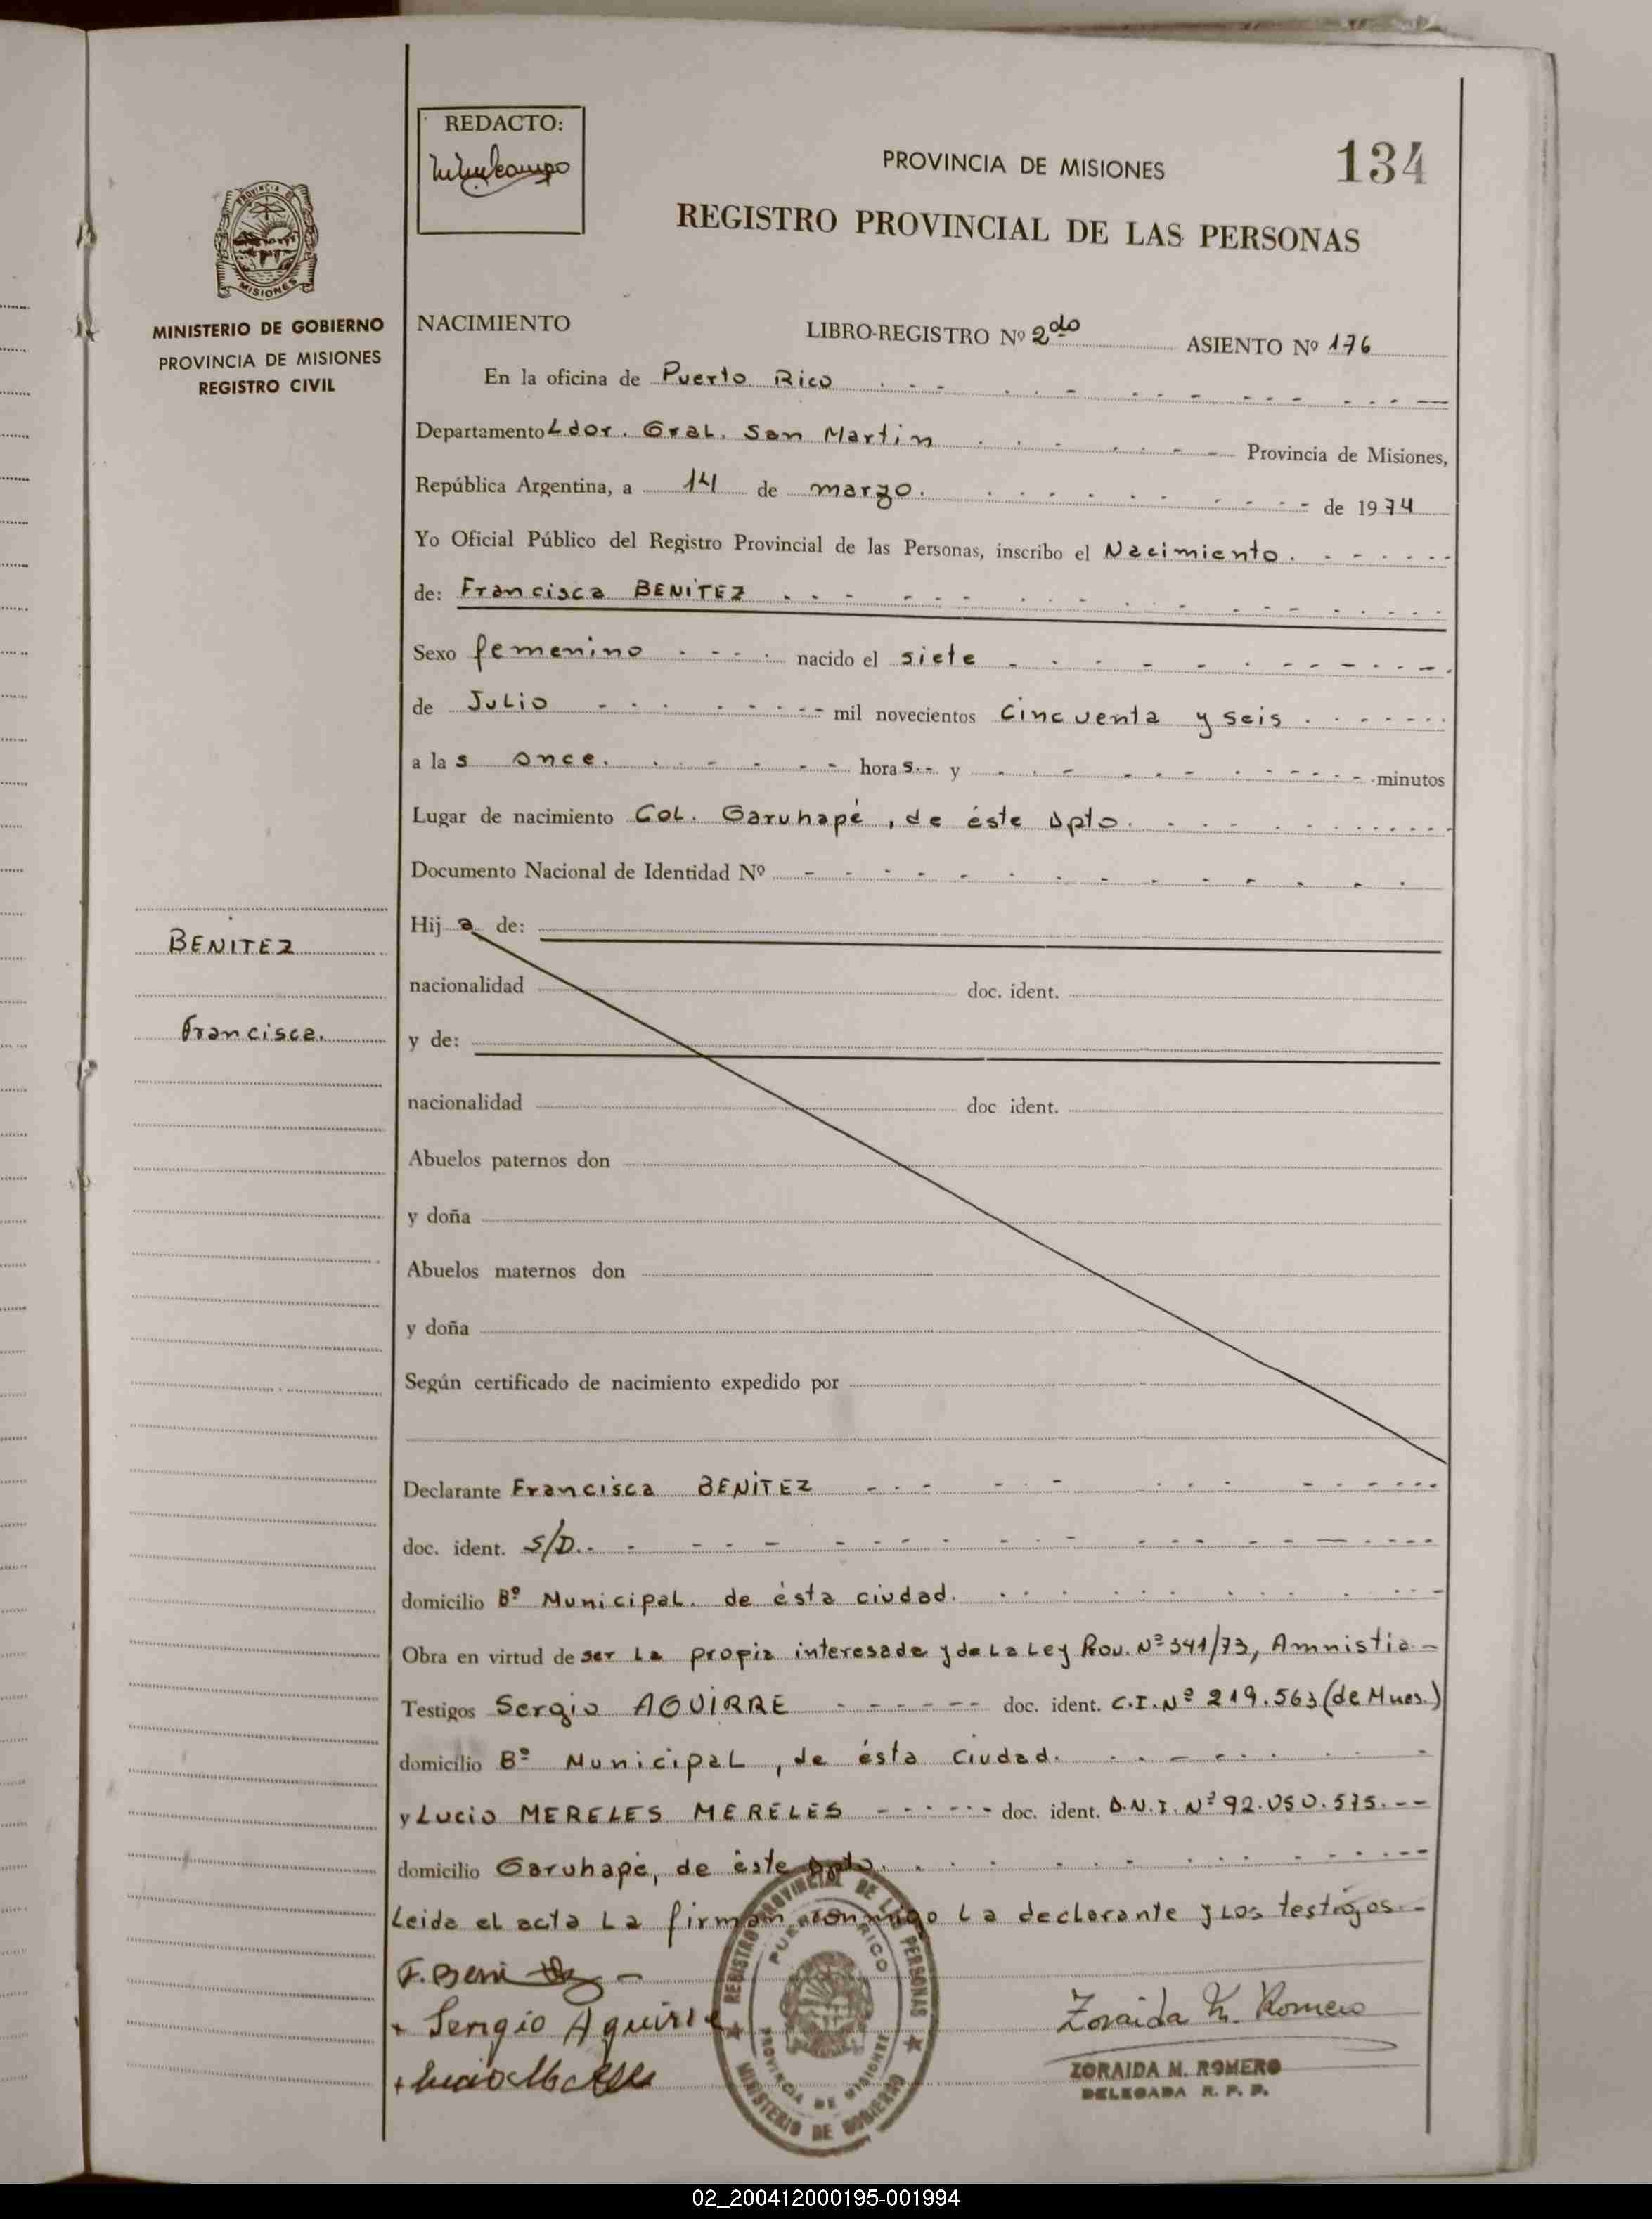 REDACTO:
PROVINCIA DE MISIONES
134
REGISTRO PROVINCIAL DE LAS PERSONAS
PROVINCIA DE
MISIONES
MINISTERIO DE GOBIERNO
PROVINCIA DE MISIONES
REGISTRO CIVIL
NACIMIENTO LIBRO-REGISTRO Nº 2do ASIENTO Nº 176
En la oficina de Puerto Rico
Departamento Ldor. Gral. San Martin Provincia de Misiones,
República Argentina, a 14 de marzo. de 1974
Yo Oficial Público del Registro Provincial de las Personas, inscribo el Nacimiento.
de: Francisca BENITEZ
Sexo femenino nacido el siete
de Julio mil novecientos Cincuenta y seis
a las once. horas. y minutos
Lugar de nacimiento Col. Garuhapé, de éste Dpto.
Documento Nacional de Identidad Nº
BENITEZ
Francisca.
Hija de:
nacionalidad doc. ident.
y de:
nacionalidad doc ident.
Abuelos paternos don
y doña
Abuelos maternos don
y doña
Según certificado de nacimiento expedido por
Declarante Francisca BENITEZ
doc. ident. S/D.
domicilio Bº Municipal. de ésta ciudad.
Obra en virtud de ser la propia interesada y de la Ley Prov. Nº 341/73, Amnistia
Testigos Sergio AGUIRRE doc. ident. C.I. Nº 219.563 (de Mnes.)
domicilio Bº Municipal, de ésta Ciudad.
y Lucio MERELES MERELES doc. ident. D.N.I. Nº 92.050.575.
domicilio Garuhapé, de éste Dpto.
Leida el acta la firman conmigo la declarante y los testigos.
F. Beni
Sergio Aguirre
Zoraida M. Romero
ZORAIDA M. ROMERO
DELEGADA R. P. P.
REGISTRO PROVINCIAL DE LAS PERSONAS
PUERTO RICO
PROVINCIA DE MISIONES
MINISTERIO DE GOBIERNO
02_200412000195-001994